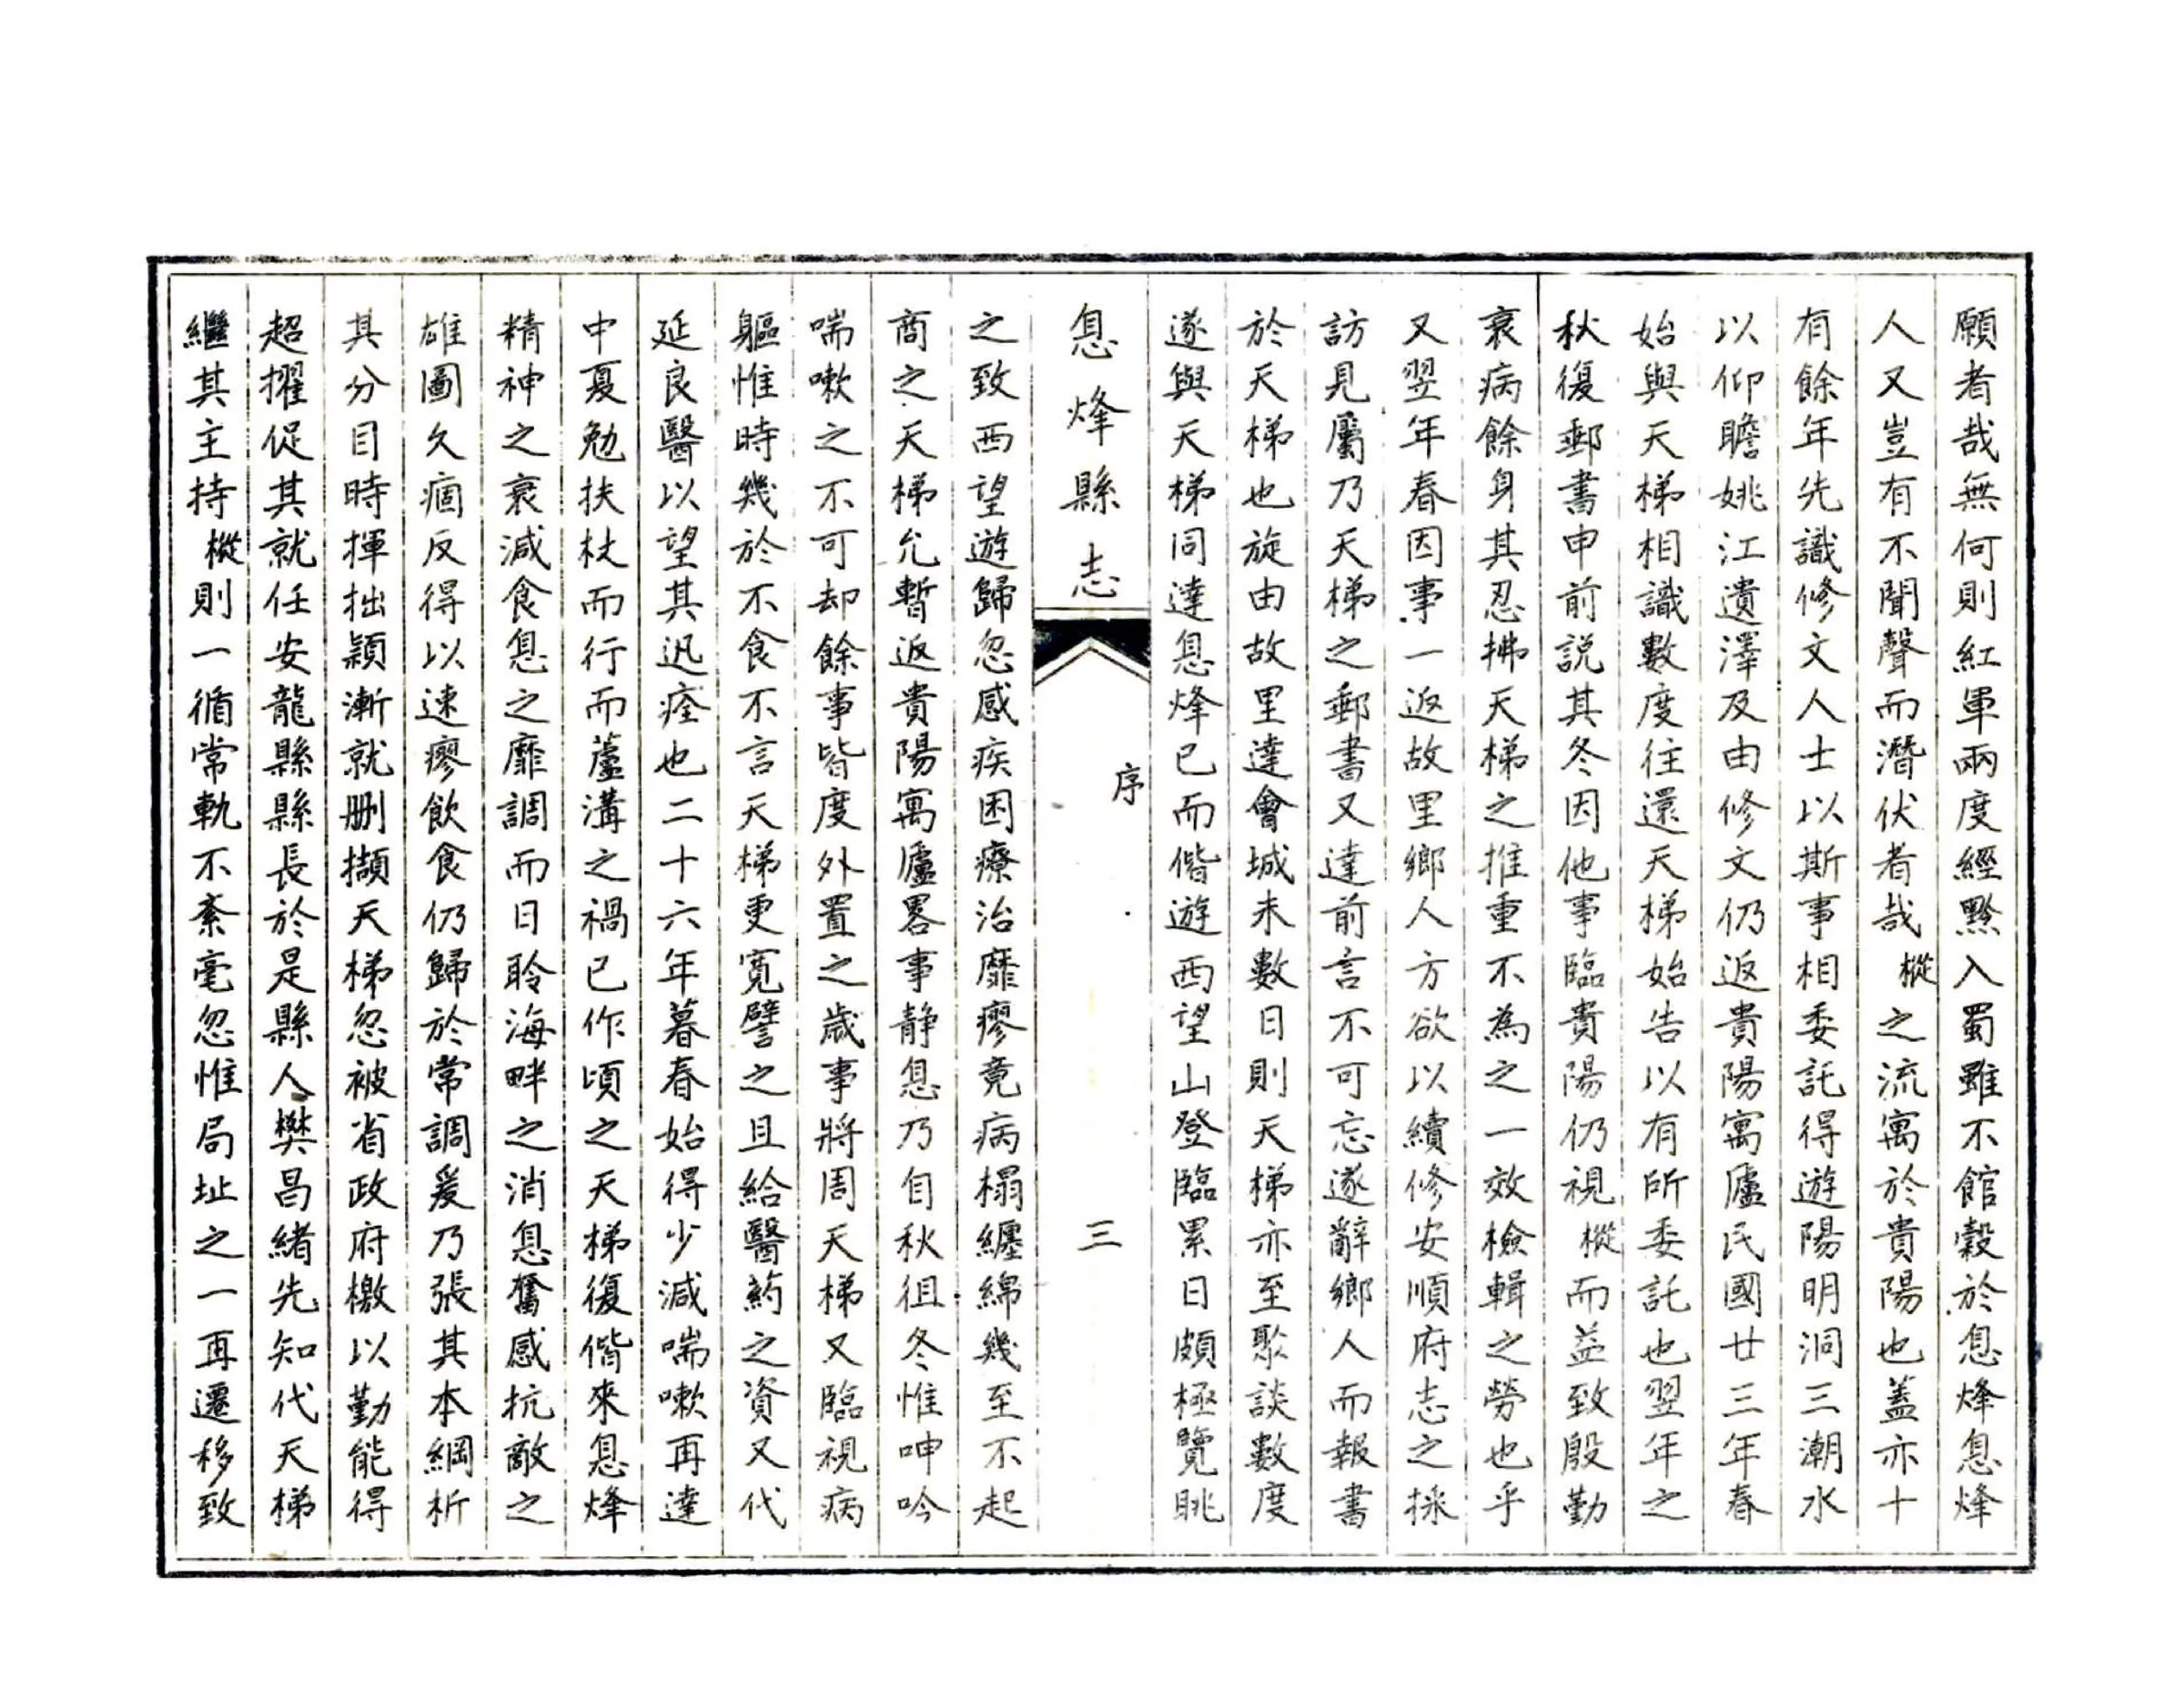 願者哉無何則紅軍兩度經黔入蜀雖不館穀於息烽息烽
人又豈有不聞聲而潛伏者哉樅之流寓於貴陽也蓋亦十
有餘年先識修文人士以斯事相委託得遊陽明洞三潮水
以仰瞻姚江遺澤及由修文仍返貴陽寓廬民國廿三年春
始與天梯相識數度往還天梯始告以有所委託也翌年之
秋復郵書申前説其冬因他事臨貴陽仍視樅而益致殷勤
衰病餘身其忍拂天梯之推重不為之一效檢輯之勞也乎
又翌年春因事一返故里鄉人方欲以續修安順府志之採
訪見屬乃天梯之郵書又達前言不可忘遂辭鄉人而報書
於天梯也旋由故里達會城未數日則天梯亦至聚談數度
遂與天梯同達息烽已而偕遊西望山登臨累日頗極覽眺
息烽縣志
序
三
之致西望遊歸忽感疾困療治靡瘳竟病榻纏綿幾至不起
商之天梯允暫返貴陽寓廬畧事靜息乃自秋徂冬惟呻吟
喘嗽之不可却餘事皆度外置之歲事將周天梯又臨視病
軀惟時幾於不食不言天梯更寬譬之且給醫药之資又代
延良醫以望其迅痊也二十六年暮春始得少減喘嗽再達
中夏勉扶杖而行而蘆溝之禍已作頃之天梯復偕來息烽
精神之衰減食息之靡調而日聆海畔之消息奮感抗敵之
雄圖久痼反得以速瘳飲食仍歸於常調爰乃張其本綱析
其分目時揮拙穎漸就删擷天梯忽被省政府檄以勤能得
超擢促其就任安龍縣縣長於是縣人樊昌緒先知代天梯
繼其主持樅則一循常軌不紊毫忽惟局址之一再遷移致